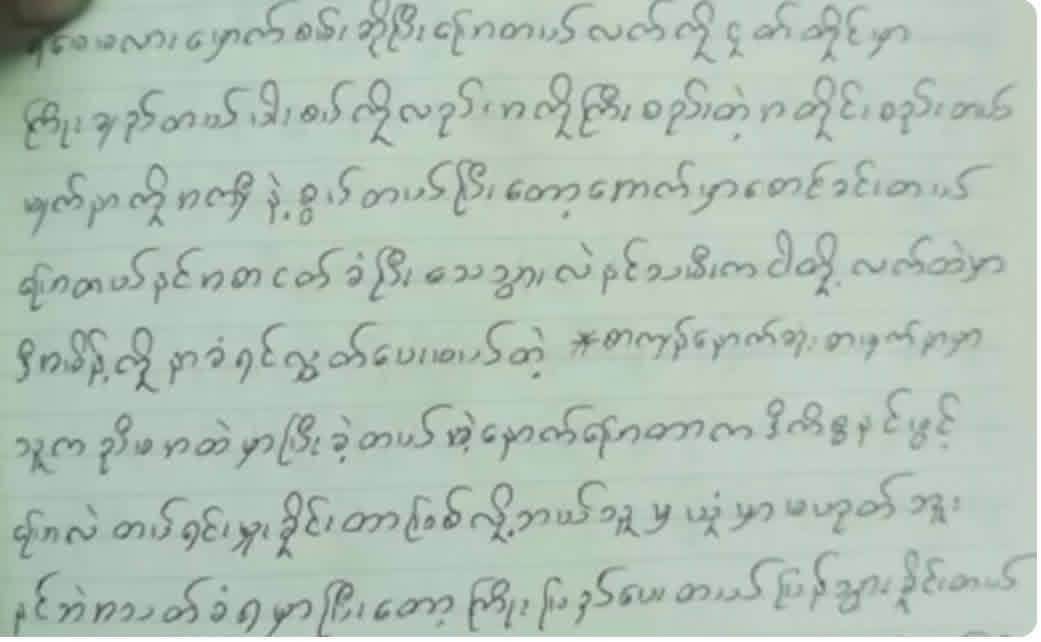 ရမေးမလား ဖျောက်စမ်းဆိုပြီးပြောတယ်လက်ကိုငုတ်တိုင်မှာ
ကြိုးချည်တယ်ပါးစပ်ကိုလည်းဂလိုကြီးစည်းတဲ့ဂတိုင်းစည်းတယ်
မျက်နှာကိုဂတ်ရှိနဲ့စွပ်တယ်ပြီးတော့အောက်မှာစောင်ခင်းတယ်
ပြောတယ်နင်ဂစငတ်ခံပြီးသေသွားလဲနင့်သမီးကငါတို့လက်ထဲမှာ
ဒီဂမိန့်ကိုနာခံရင်လွှတ်ပေးမယ်တဲ့ *စာကျန်နောက်ဆုံးစာမျက်နှာမှာ
သူကညီမဂထဲမှာပြီးခဲ့တယ်အဲ့နောက်ပြောတာကဒီကိစ္စနင်ဖွင့်
ပြောလဲတပ်ရင်းမှူးခိုင်းတာဖြစ်လို့ဘယ်သူမှယုံမှာမဟုတ်ဘူး
နင်ဘဲဂသတ်ခံရမှာပြီးတော့ကြိုးဖြည်ပေးတယ်ပြန်သွားခိုင်းတယ်